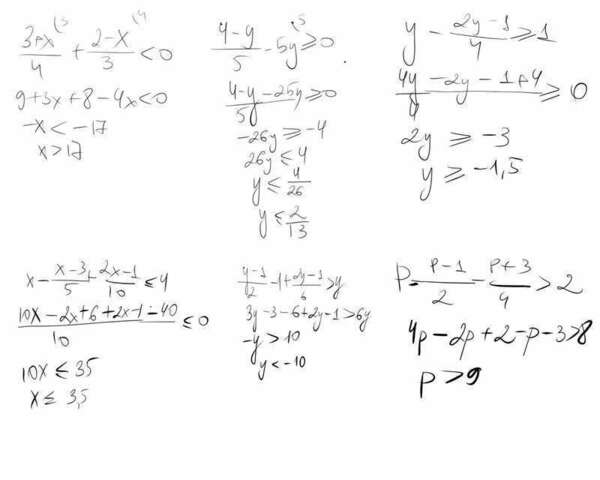 (3+x)/4 (3 + (2-x)/3 (4 < 0
9+3x+8-4x<0
-x < -17
x>17
(4-y)/5 - 5y (5 ≥ 0
(4-y-25y)/5 ≥ 0
-26y ≥ -4
26y ≤ 4
y ≤ 4/26
y ≤ 2/13
y - (2y-1)/4 ≥ 1
(4y-2y-1+4)/4 ≥ 0
2y ≥ -3
y ≥ -1,5
x - (x-3)/5 + (2x-1)/10 ≤ 4
(10x-2x+6+2x-1-40)/10 ≤ 0
10x ≤ 35
x ≤ 3,5
(y-1)/2 - 1 + (2y-1)/6 > y
3y-3-6+2y-1>6y
-y > 10
y < -10
P - (P-1)/2 - (P+3)/4 > 2
4p-2p+2-p-3>8
p > 9